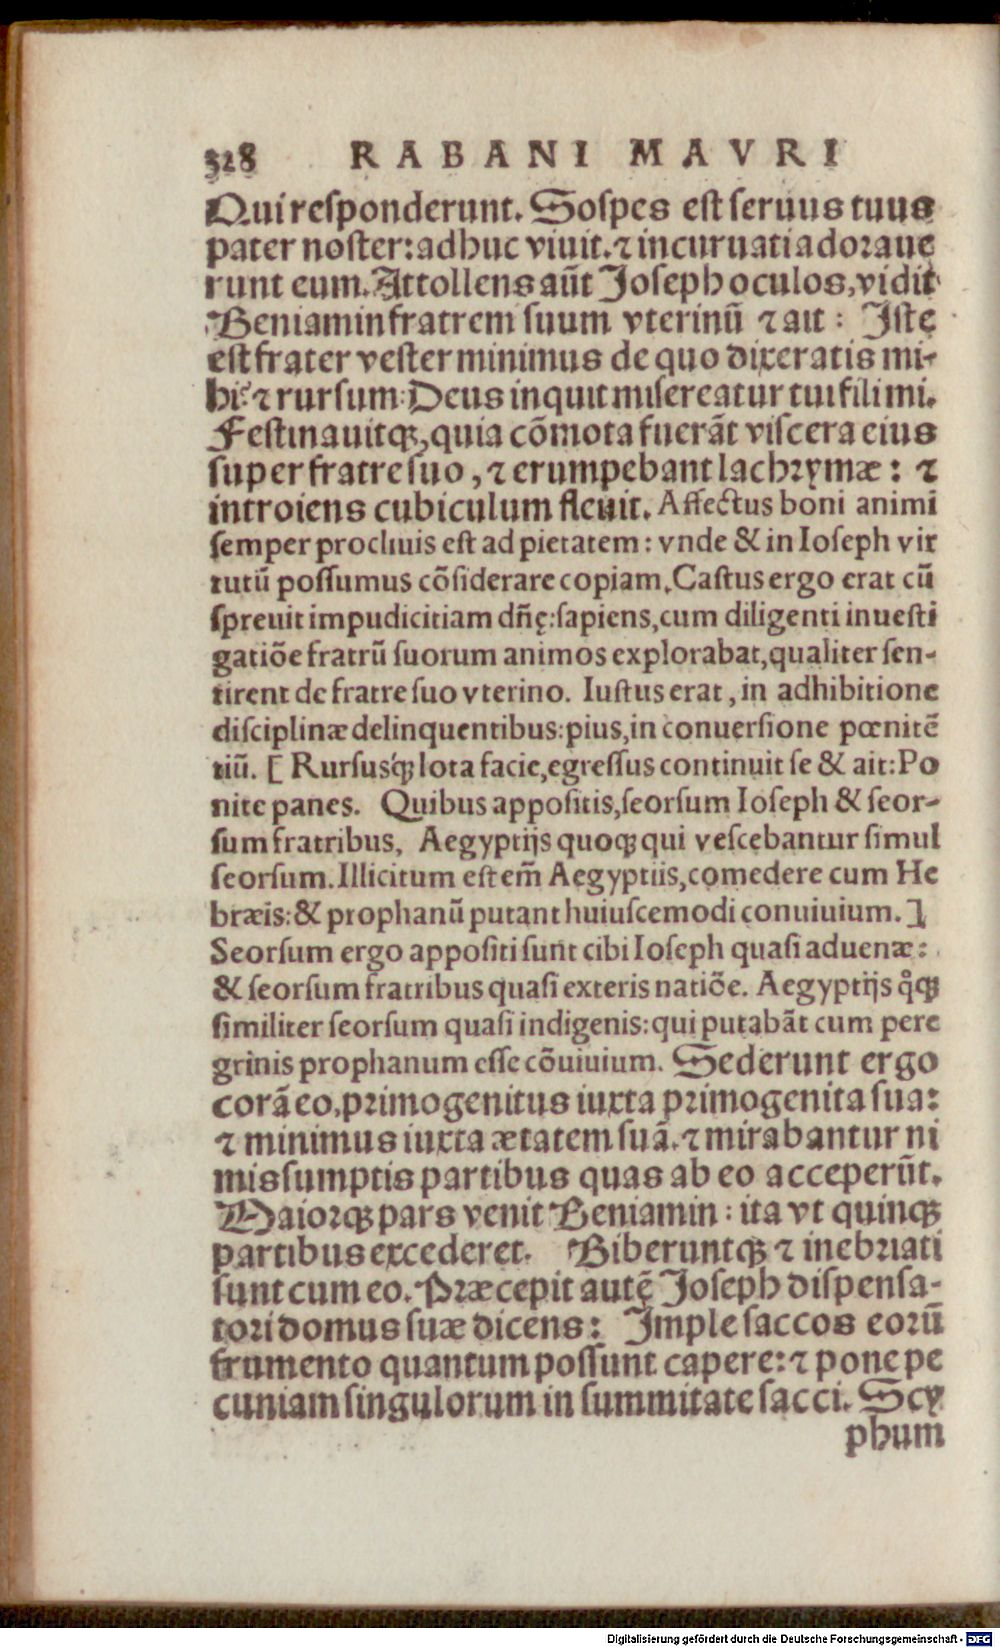 328 RABANI MAVRI
Qui reſponderunt. Soſpes eſt ſeruus tuus
pater noſter: adhuc viuit. ⁊ incuruati adoꝛaue
runt eum. Attollens aūt Joſeph oculos, vidit
Beniamin fratrem ſuum vterinū ⁊ ait : Iſte
eſt frater veſter minimus de quo dixeratis mi-
hi? ⁊ rurſum: Deus inquit miſereatur tui fili mi.
Feſtinauitqꝫ, quia cõmota fuerãt viſcera eius
ſuper fratre ſuo, ⁊ erumpebant lachꝛymæ: ⁊
introiens cubiculum fleuit. Affectus boni animi
ſemper procliuis eſt ad pietatem: vnde & in Ioſeph vir
tutū poſſumus cõſiderare copiam. Caſtus ergo erat cū
ſpreuit impudicitiam dñę: ſapiens, cum diligenti inueſti
gatiõe fratrū ſuorum animos explorabat, qualiter ſen-
tirent de fratre ſuo vterino. Iuſtus erat, in adhibitione
diſciplinæ delinquentibus: pius, in conuerſione pœnitẽ
tiū. [ Rurſusq́ꝫ lota facie, egreſſus continuit ſe & ait: Po
nite panes. Quibus appoſitis, ſeorſum Ioſeph & ſeor-
ſum fratribus, Aegyptijs quoqꝫ qui veſcebantur ſimul
ſeorſum. Illicitum eſt em̃ Aegyptiis, comedere cum He
bræis: & prophanū putant huiuſcemodi conuiuium. ]
Seorſum ergo appoſiti ſunt cibi Ioſeph quaſi aduenæ:
& ſeorſum fratribus quaſi exteris natiõe. Aegyptijs q̊qꝫ
ſimiliter ſeorſum quaſi indigenis: qui putabãt cum pere
grinis prophanum eſſe cõuiuium. Sederunt ergo
corã eo, pꝛimogenitus iuxta pꝛimogenita ſua:
⁊ minimus iuxta ætatem ſuã. ⁊ mirabantur ni
mis ſumptis partibus quas ab eo acceperūt.
Maioꝛqꝫ pars venit Beniamin: ita vt quinqꝫ
partibus excederet. Biberuntqꝫ ⁊ inebꝛiati
ſunt cum eo. Pꝛæcepit autẽ Joſeph diſpenſa-
toꝛi domus ſuæ dicens: Imple ſaccos eoꝛū
frumento quantum poſſunt capere: ⁊ pone pe
cuniam ſingulorum in ſummitate ſacci. Scy
phum
Digitalisierung gefördert durch die Deutsche Forschungsgemeinschaft - DFG